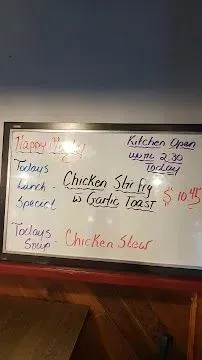 Happy Monday
Kitchen Open
until 2:30
Today
Todays
Lunch - Chicken Stir fry
Special w Garlic Toast $10.45
Todays
Soup - Chicken Stew